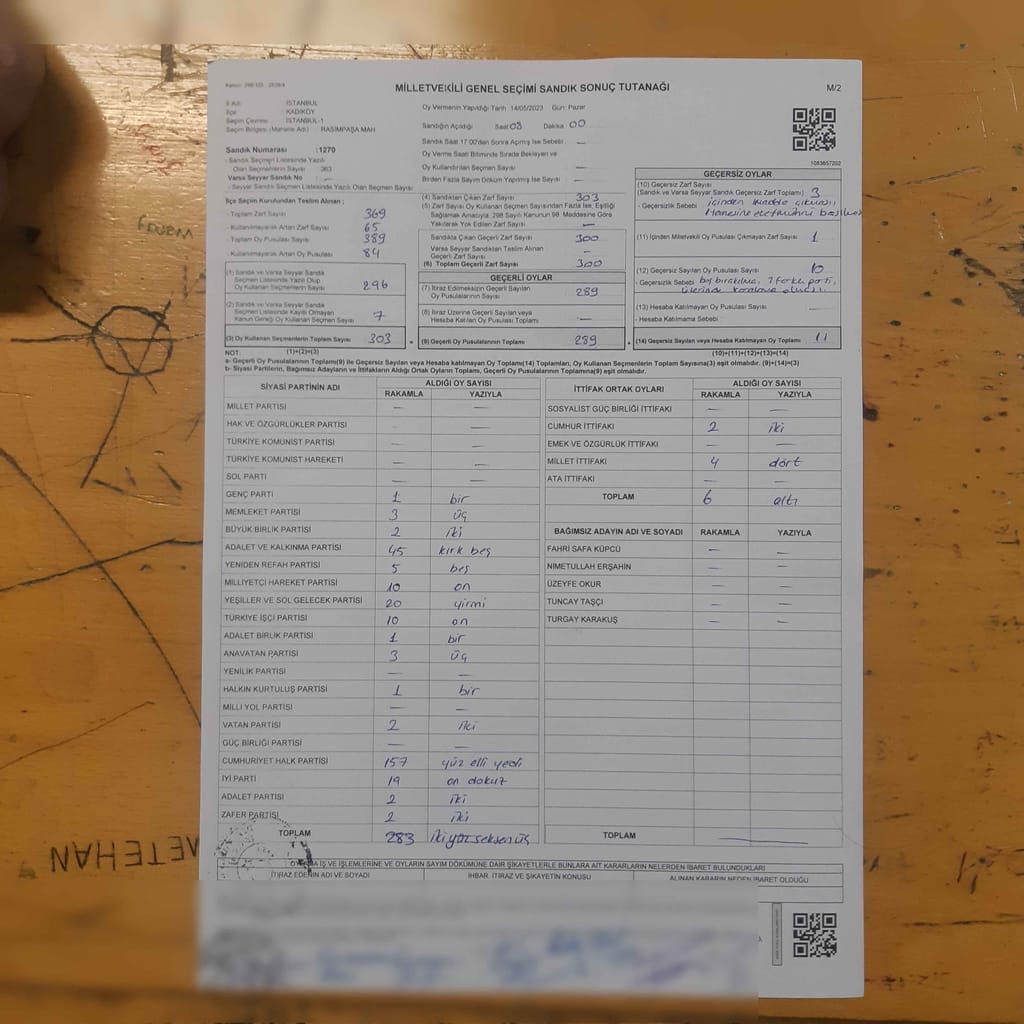 Kanun: 298-105
MİLLETVEKİLİ GENEL SEÇİMİ SANDIK SONUÇ TUTANAĞI
M/2
İl Adı : İSTANBUL
İlçe KADIKÖY
Seçim Çevresi İSTANBUL-1
Seçim Bölgesi (Mahalle Adı) RASİMPAŞA MAH.
Oy Vermenin Yapıldığı Tarih 14/05/2023 Gün: Pazar
Sandığın Açıldığı Saat 08 Dakika 00
Sandık Saat 17.00'den Sonra Açılmış İse Sebebi —
Oy Verme Saati Bitiminde Sırada Bekleyen ve
Oy Kullandırılan Seçmen Sayısı —
Birden Fazla Sayım Döküm Yapılmış İse Sayısı —
1083657202
Sandık Numarası :1270
- Sandık Seçmen Listesinde Yazılı
Olan Seçmenlerin Sayısı 363
Varsa Seyyar Sandık No :—
- Seyyar Sandık Seçmen Listesinde Yazılı Olan Seçmen Sayısı:
İlçe Seçim Kurulundan Teslim Alınan ;
- Toplam Zarf Sayısı 369
- Kullanılmayarak Artan Zarf Sayısı 65
- Toplam Oy Pusulası Sayısı 389
- Kullanılmayarak Artan Oy Pusulası Sayısı 84
(1) Sandık ve Varsa Seyyar Sandık
Seçmen Listesinde Yazılı Olup
Oy Kullanan Seçmen Sayısı 296
(2) Sandık ve Varsa Seyyar Sandık
Seçmen Listesinde Kayıtlı Olmayan
Kanun Gereği Oy Kullanan Seçmen Sayısı 7
(3) Oy Kullanan Seçmenlerin Toplam Sayısı 303
(1)+(2)=(3)
(4) Sandıktan Çıkan Zarf Sayısı 303
(5) Zarf Sayısı Oy Kullanan Seçmen Sayısından Fazla İse, Eşitliği
Sağlamak Amacıyla, 298 Sayılı Kanunun 98. Maddesine Göre
Yakılarak Yok Edilen Zarf Sayısı —
Sandıkta Çıkan Geçerli Zarf Sayısı 300
Varsa Seyyar Sandıktan Teslim Alınan
Geçerli Zarf Sayısı —
(6) Toplam Geçerli Zarf Sayısı 300
GEÇERLİ OYLAR
(7) İtiraz Edilmeksizin Geçerli Sayılan
Oy Pusulalarının Sayısı 289
(8) İtiraz Üzerine Geçerli Sayılan veya
Hesaba Katılan Oy Pusulaları Toplamı —
(9) Geçerli Oy Pusulalarının Toplamı 289
GEÇERSİZ OYLAR
(10) Geçersiz Zarf Sayısı
(Sandık ve Varsa Seyyar Sandık Geçersiz Zarf Toplamı) 3
- Geçersizlik Sebebi içinden
(11) İçinden Milletvekili Oy Pusulası Çıkmayan Zarf Sayısı 1
(12) Geçersiz Sayılan Oy Pusulası Sayısı 10
- Geçersizlik Sebebi boş bırakılma, 7 farklı parti,
üzerine karalama
(13) Hesaba Katılmayan Oy Pusulası Sayısı —
- Hesaba Katılmama Sebebi
(14) Geçersiz Sayılan veya Hesaba Katılmayan Oy Toplamı 11
(10)+(11)+(12)+(13)=(14)
NOT:
a- Geçerli Oy Pusulalarının Toplamı(9) ile Geçersiz Sayılan veya Hesaba katılmayan Oy Toplamı(14) Toplamları, Oy Kullanan Seçmenlerin Toplam Sayısına(3) eşit olmalıdır. (9)+(14)=(3)
b- Siyasi Partilerin, Bağımsız Adayların ve İttifakların Aldığı Ortak Oyların Toplamı, Geçerli Oy Pusulalarının Toplamına(9) eşit olmalıdır.
SİYASİ PARTİNİN ADI ALDIĞI OY SAYISI
RAKAMLA YAZIYLA
MİLLET PARTİSİ — —
HAK VE ÖZGÜRLÜKLER PARTİSİ — —
TÜRKİYE KOMÜNİST PARTİSİ — —
TÜRKİYE KOMÜNİST HAREKETİ — —
SOL PARTİ — —
GENÇ PARTİ 1 bir
MEMLEKET PARTİSİ 3 üç
BÜYÜK BİRLİK PARTİSİ 2 iki
ADALET VE KALKINMA PARTİSİ 45 kırk beş
YENİDEN REFAH PARTİSİ 5 beş
MİLLİYETÇİ HAREKET PARTİSİ 10 on
YEŞİLLER VE SOL GELECEK PARTİSİ 20 yirmi
TÜRKİYE İŞÇİ PARTİSİ 10 on
ADALET BİRLİK PARTİSİ 1 bir
ANAVATAN PARTİSİ 3 üç
YENİLİK PARTİSİ — —
HALKIN KURTULUŞ PARTİSİ 1 bir
MİLLİ YOL PARTİSİ — —
VATAN PARTİSİ 2 iki
GÜÇ BİRLİĞİ PARTİSİ — —
CUMHURİYET HALK PARTİSİ 157 yüz elli yedi
İYİ PARTİ 19 on dokuz
ADALET PARTİSİ 2 iki
ZAFER PARTİSİ 2 iki
TOPLAM 283 ikiyüz seksen üç
İTTİFAK ORTAK OYLARI ALDIĞI OY SAYISI
RAKAMLA YAZIYLA
SOSYALİST GÜÇ BİRLİĞİ İTTİFAKI — —
CUMHUR İTTİFAKI 2 iki
EMEK VE ÖZGÜRLÜK İTTİFAKI — —
MİLLET İTTİFAKI 4 dört
ATA İTTİFAKI — —
TOPLAM 6 altı
BAĞIMSIZ ADAYIN ADI VE SOYADI RAKAMLA YAZIYLA
FAHRİ SAFA KÜPCÜ — —
NİMETULLAH ERŞAHİN — —
ÜZEYFE OKUR — —
TUNCAY TAŞÇI — —
TURGAY KARAKUŞ — —
TOPLAM —
OYLAMA İŞ VE İŞLEMLERİNE VE OYLARIN SAYIM DÖKÜMÜNE DAİR ŞİKAYETLERLE BUNLARA AİT KARARLARIN NELERDEN İBARET BULUNDUKLARI
İTİRAZ EDENİN ADI VE SOYADI İHBAR, İTİRAZ VE ŞİKAYETİN KONUSU ALINAN KARARIN NEDEN İBARET OLDUĞU
METEHAN